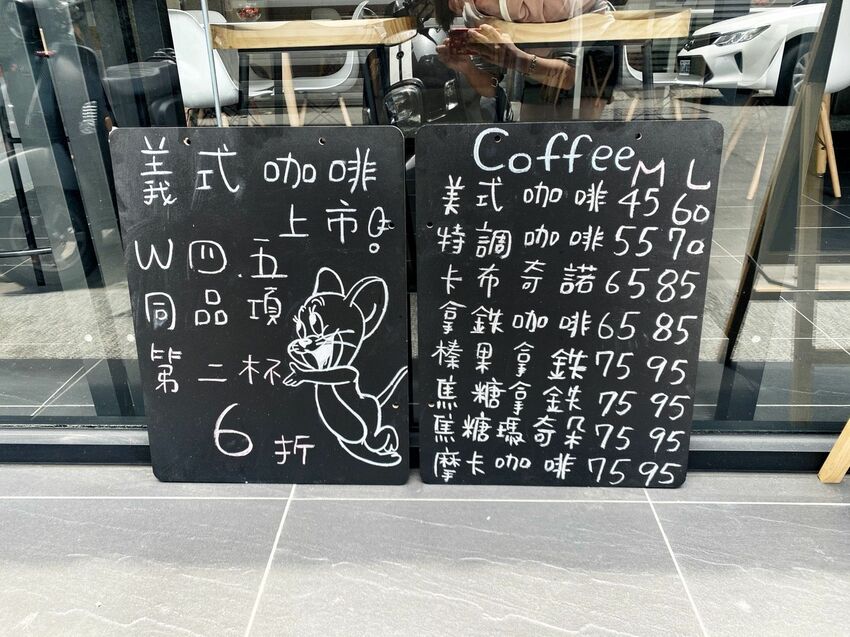 義式咖啡
上市!
W四.五
同品項
第二杯
6折
Coffee M L
美式咖啡 45 60
特調咖啡 55 70
卡布奇諾 65 85
拿鉄咖啡 65 85
榛果拿鉄 75 95
焦糖拿鉄 75 95
焦糖瑪奇朵 75 95
摩卡咖啡 75 95